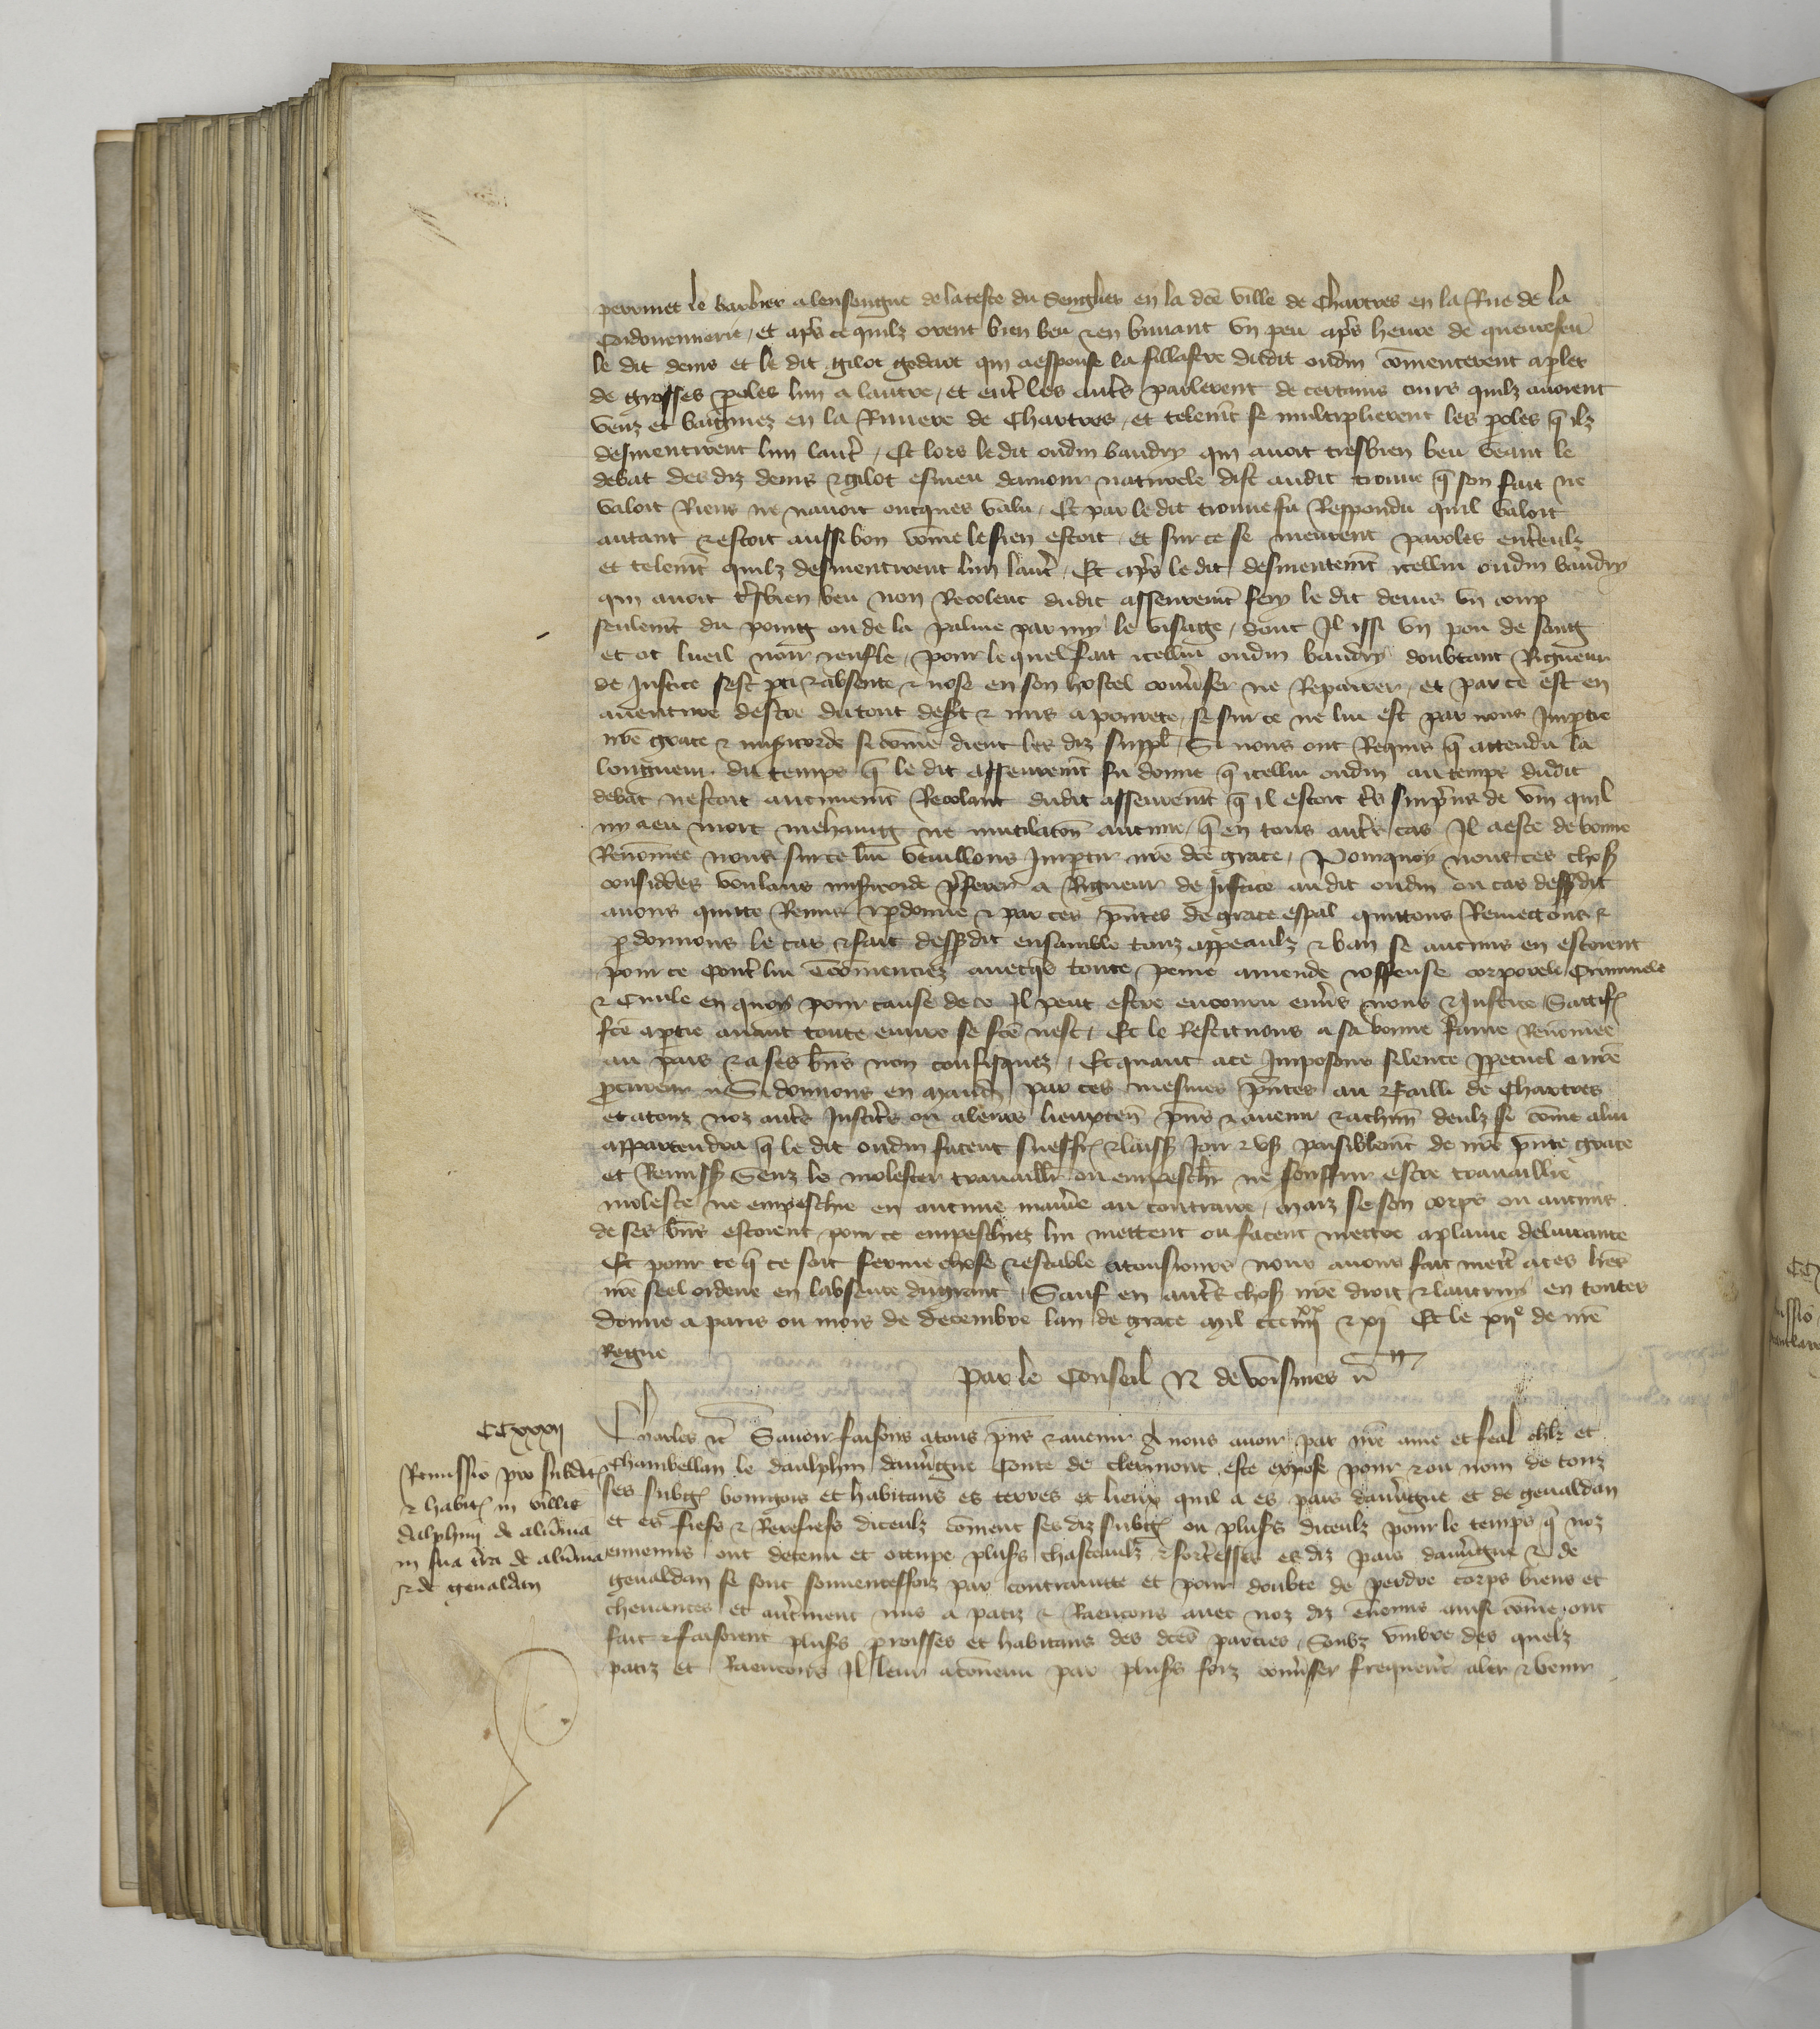 perrinet le barbier a lenseigne de la teste du sengler en la dce ville de Chartres en la Rue de la
Cordouennerie / et apres ce quilz orent bien beu & en buuant vn peu apres heure de queuurefeu
le dit denis et le dit gilot godart qui a espouse la fillastre dudit oudin comencerent a pler
de grosses poles lun a lautre / et entre les autres parlerent de certains cuirs quilz auoient
veuz et baigniez en la Riuiere de Chartres / et telemt se multiplierent les poles q ilz
desmentirent lun lautre / Et lors ledit oudin baudry qui auoit tresbien beu veant le
debat des diz denis & gilot esmeu damour naturele dist audit que son fait ne
valoit Riens ne nauoit oncques valu / Et par ledit fu Respondu quil valoit
autant & estoit aussi bon come le sien estoit / et sur ce se meurent paroles entreulz
et telemt quilz desmentirent lun lautre / Et apres le dit desmentemt icellui oudin baudry
qui auoit tresbien beu non Recolent dudit asseuremt fery le dit denis vn coup
seulemt du poing ou de la palme parmy le visaige / dont Il issi vn pou de sang
et ot lueil noir & enfle / pour le quel fait icellui oudin baudry doubtant Rigueur
de Justice sest pti & absente & nose en son hostel conuser ne Repairer / et par ce est en
auenture destre du tout desert & mis a pourete / se sur ce ne lui est par nous Imptie
nre grace & misicorde si come dient les diz suppl / Si nous ont Requis q attendu la
longueur du temps q le dit asseuremt fu donne q icellui oudin au temps dudit
debat nestoit aucunemt Recolant dudit asseuremt q il estoit tres surpris de vin quil
ny a eu mort mehaing ne mutilaton aucune / q en tous autres cas Il a este de bonne
Renomee nous sur ce lui vueillons Imptir nre dce grace / Pourquoy nous ces choses
considerees voulans misicorde preferer a Rigueur de Justice audit oudin ou cas dessusdit
auons quitte Remis & pdonne & par ces pntes de grace espal quittons Remettons &
pdonnons le cas & fait dessusdit ensamble touz appeaulz & ban se aucuns en estoient
pour ce contre lui encomenciez auecques toute peine amende & offense corporele Criminele
& Ciuile en quoy pour cause de ce Il peut estre encouru enuers nous & Justice / Satisf
fce a ptie auant toute euure se fce nest / Et le Restituons a sa bonne fame Renomee
au pais & a ses bns non confisquez / Et quant a ce Imposons silence ppetuel a nre
procureur Si donnons en mandt par ces mesmes pntes au Bailli de Chartres
et a touz noz autres Justiciers ou a leurs lieuxten pns & auenir & a chun deulz si come a lui
appartendra q le dit oudin facent sueffr & laiss Joir & vs paisiblemt de nre pnte grace
et Remiss Senz le molester trauaillr ou empeschr ne souffrir estre trauaillie
moleste ne empeschie en aucune maniere au contraire / maiz se son corps ou aucuns
de ses bns estoient pour ce empeschiez lui mettent ou facent mettre a plaine deliurance
Et pour ce q ce soit ferme chose & estable a tousiours nous auons fait mettre a ces lres
nre seel ordene en labsence du grant / Sauf en autres choses nre droit & lautruy en toutes
donne a paris ou mois de decembre lan de grace mil ccc iiiixx & xi Et le xiie de nre
Regne
Par le Conseil N de voisines
CCxxxii
Charles &c Sauoir faisons a tous pns & auenir A nous auoir par nre ame et feal chlr et
Chambellan le daulphin dauuergne Conte de clermont este expose pour & ou nom de touz
ses subgs bourgois et habitans es terres et lieux quil a es pais dauuergne et de geualdan
et es fiefs & Rerefiefs diceulz coment ses diz subgs ou plusrs diceulz pour le temps q noz
ennemis ont detenu et occupe plusrs chasteaulz & forteresses es diz pais dauuergne & de
geualdan se sont souuenteffoiz par contrainte et pour doubte de perdre corps biens et
cheuances et autrement mis a patiz & Raencons auec noz diz ennemis ainsi come ont
fait & faisoient plusrs proisses et habitans des dces parties / Soubz vmbre des quelz
patiz et Raencons Il leur a conuenu par plusrs foiz conuser frequenter aler & venir
Remissio pro subdit
& habit in villis
dalphini de aluernia
in sua terra de aluernia
& de geualdan